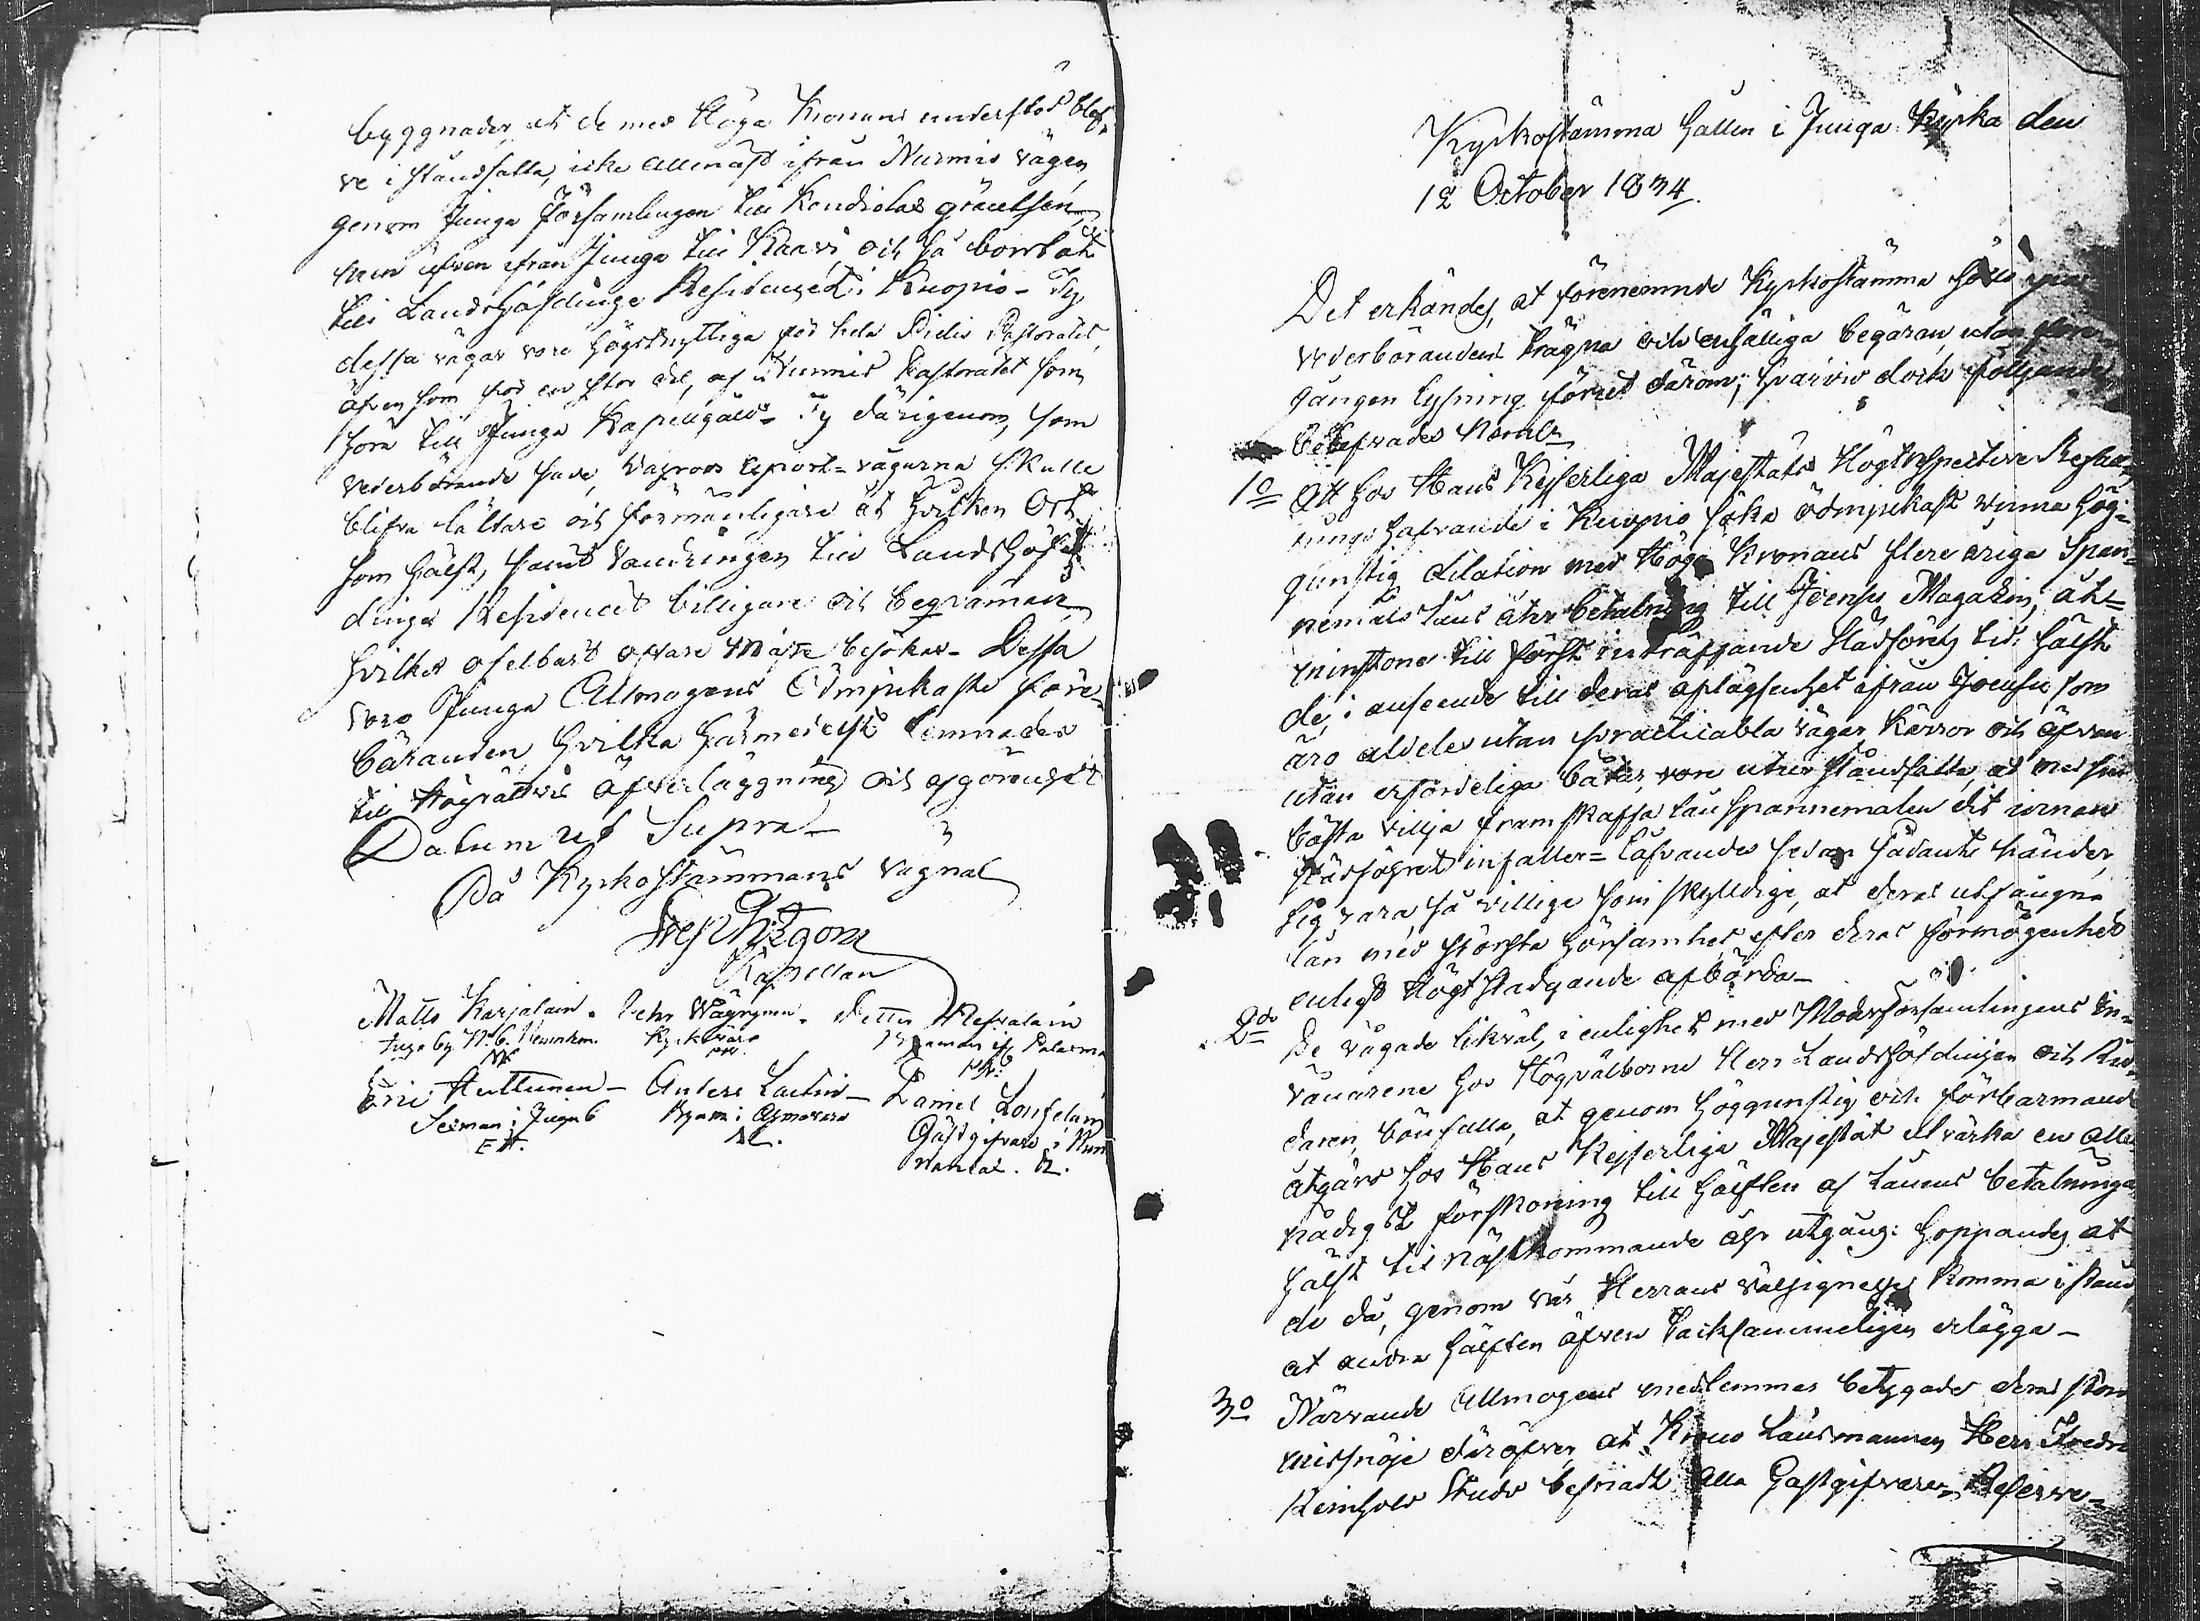 byggnader, at de med Höga Kronans understöd blef-
ve i ståndsatta, icke allenast ifrån Nurmis vägen
genom Juuga Församlingen till Kondiolax gräntsen,
men äfven ifrån Juuga till Kaavi och så bortåt
till Landshöfdinge Residencet i Kuopio - Ty
dessa vägar vore högstnyttiga för hela Pielis Pastoratet,
äfven som för en stor del, af Nurmis Pastoratet som
höra till Juuga Kapellgäld - Ty därigenom, som
vederbörande sade, Export-vägarna skulle
blifva lättare och förmånligare åt hvilken Ort
som hälst, samt vandringen till Landshöf-
dinge Residencet billigare och beqvämare,
hvilket ofelbart oftare måste besökas - Dessa
voro Juuga Allmogens Ödmjukaste före-
häranden hvilka härmedelst lemnades
till Högrättvis Öfverläggning och afgörenhet
Datum ut Supra -
På Kyrkostämmans vägnar

Kapellan
Matts Karjalain. Petr Vägrynen. Petter Nevalain
Juga by No 6.
Eric Huttunen - Anders Lackin - Daniel
i Juga 6
E H. Gästgifvare i

Kyrkostämma hållen i Juuga Kyrka den
12 October 1834.
Det erkändes, at förenemnde Kyrkostämma hölls uppå
vederbörandens trägna och enhälliga begäran, utan före-
gången lysning förut därom; hvarvid dock följande
1o Att hos Hans Kejserliga Majestäts Högtrespective Befall-
nings hafvande i Kuopio söka ödmjukast vinna hög-
gunstig dilation med Höga Kronans flere äriga Span-
nemåls låns åter betalning till Joensu Magazin, åt-
minstone till först inträffande slädföres tid: hälst
de, i anseende till deras aflägsenhet ifrån Joensu som
äro aldeles utan practicabla vägar kärror och äfven
utan erforderliga båtar, vore utur ståndsatte, at med sin
bästa villja framskaffa lån Spannemålen dit innan
slädföret infaller = låfvandes sedan sådant händer,
sig vara så villige som skylldige, at deras utfångna
lån med största hörsamhet efter deras förmögenhet
enligt Högt stadgande afbörda -
2o De vågade likväl, i enlighet med Moderförsamlingens In-
vånarene hos Högvälborne Herr Landshöfdingen och Rid-
daren, bönfalla, at genom höggunstig och förbarmande
åtgärd hos Hans Kejserliga Majestät utvärka en Aller-
nådigst förskoning till hälften af lånens betalninga
hälst till nästkommande års utgång: hoppandes at
de då, genom vår Herrans välsignelse komma i stånd
at andra hälften äfven tacksammeligen erlägga -
3o Närvande Allmogens medlemmar betygade deras stora
missnöje däröfver, at Krono Länsmannen Herr Fredr
Reinhold Stude befriadt alla Gästgifvare, Reserve-